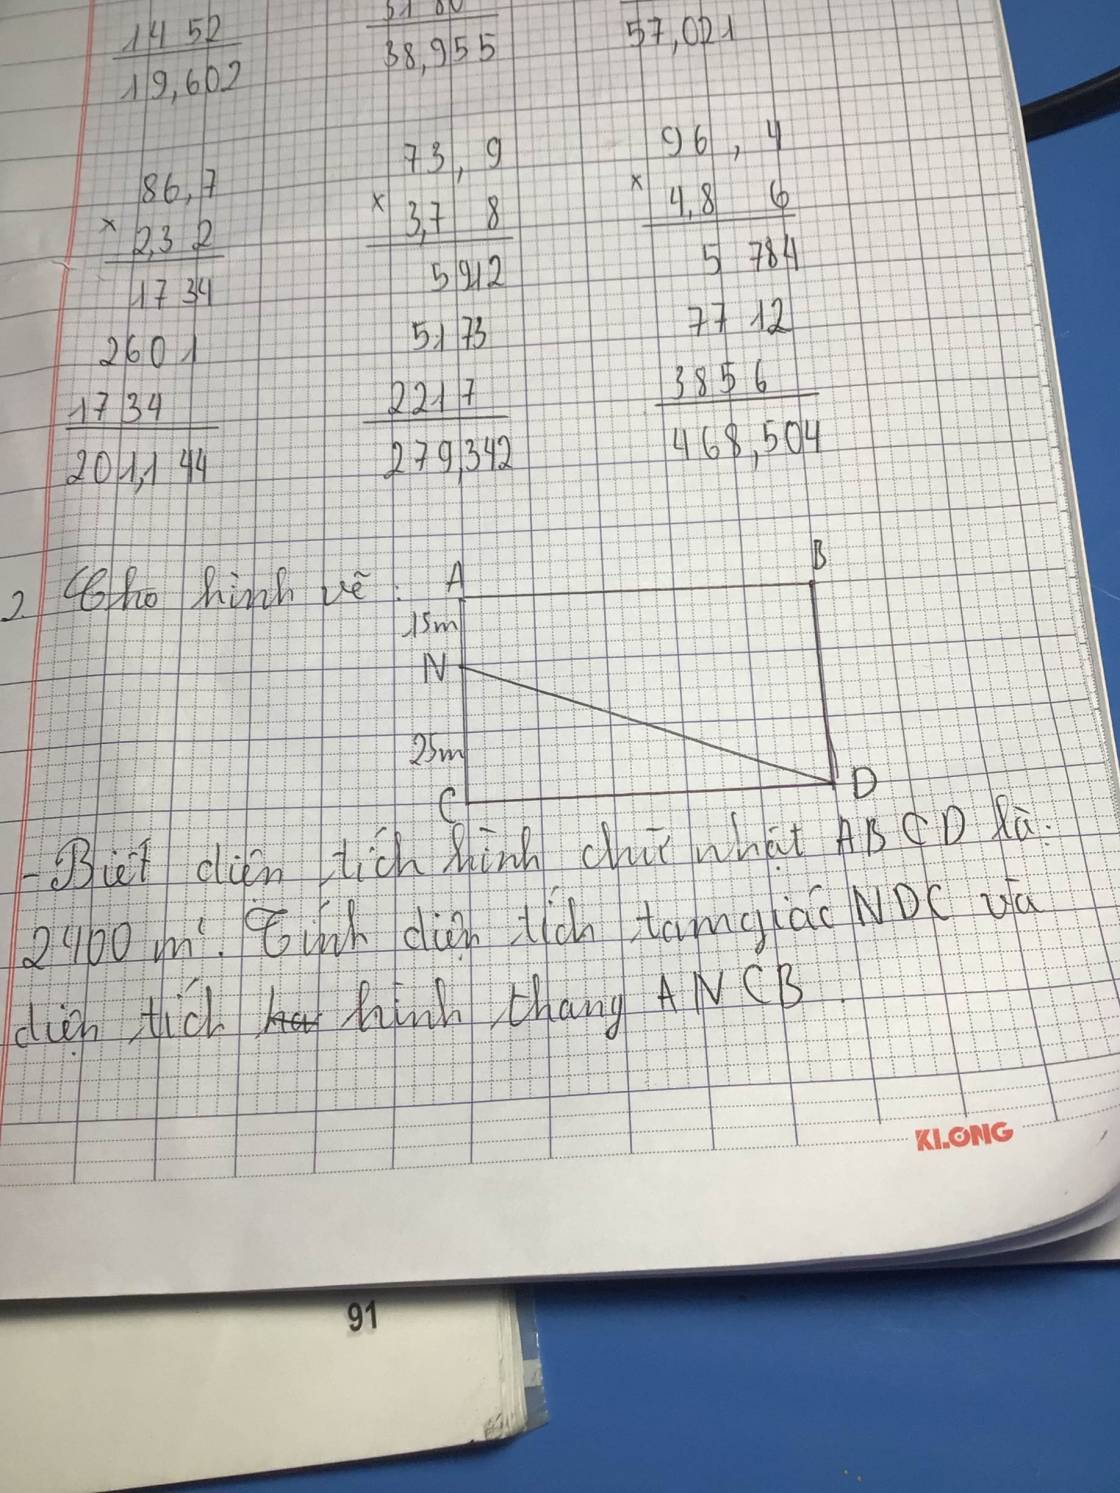 1452
19,602
38,955
57,021
86,7
x 2,32
1734
2601
1734
201,144
73,9
x 3,78
5912
5173
2217
279,342
96,4
x 4,86
5784
7712
3856
468,504
2. Cho hình vẽ: A B
15m
N
25m
C D
- Biết diện tích hình chữ nhật ABCD là:
2400 m². Tính diện tích tam giác NDC và
diện tích hình thang ANCB.
KLONG
91